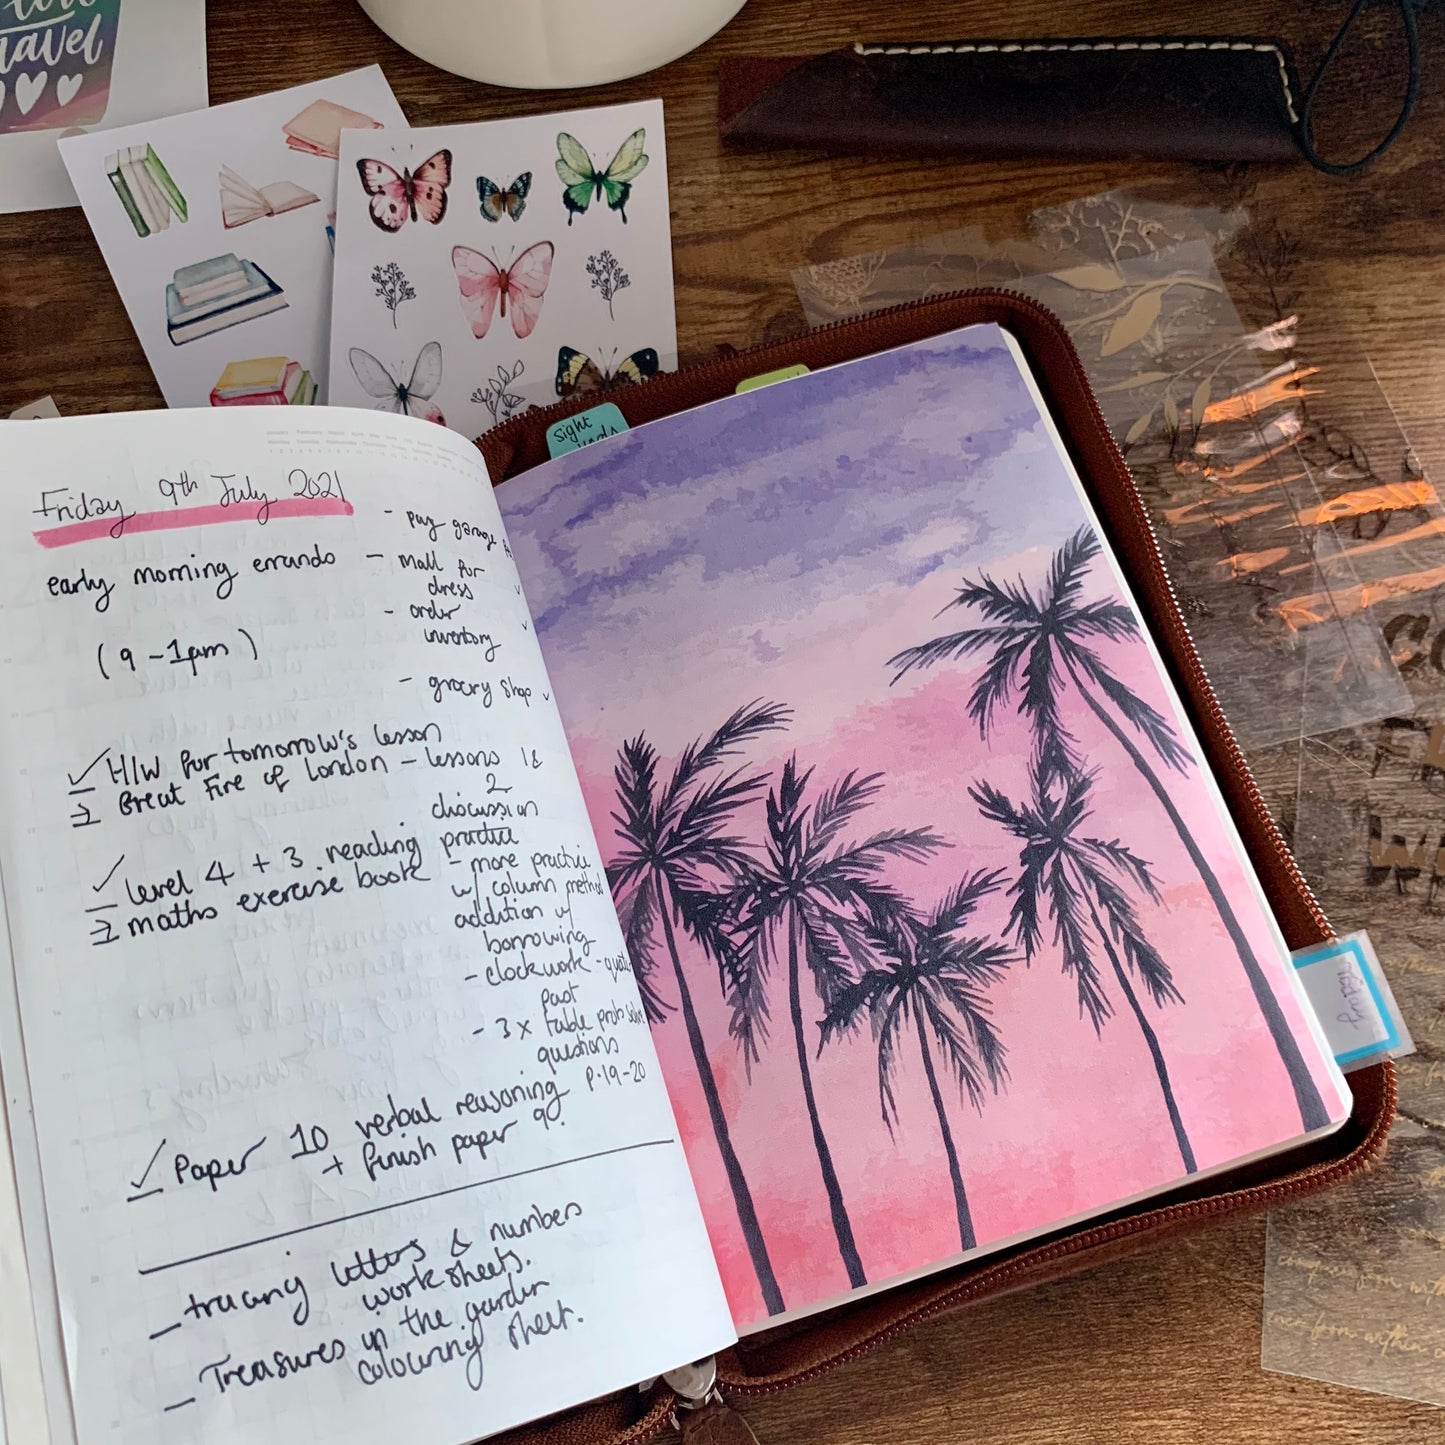 love
travel
sight
Friday 9th July 2021
early morning errando
(9 - 1pm)
- pay garage
- mall for
dress
- order
inventory
- grocery shop
H/W for tomorrow's lesson
Great Fire of London - lessons 1 &
2
discussion
level 4 + 3 reading practice
maths exercise book - more practice
w/ column method
addition w/
borrowing
- clockwork -
past
- 3 x table
questions
p.19-20
Paper 10 verbal reasoning
+ finish paper 9.
tracing letters & numbers
worksheets.
Treasures in the garden
colouring sheet.